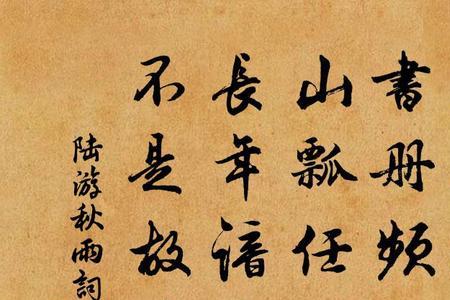 書册频
山瓢任
長年諳
不是故
陆游秋雨詞